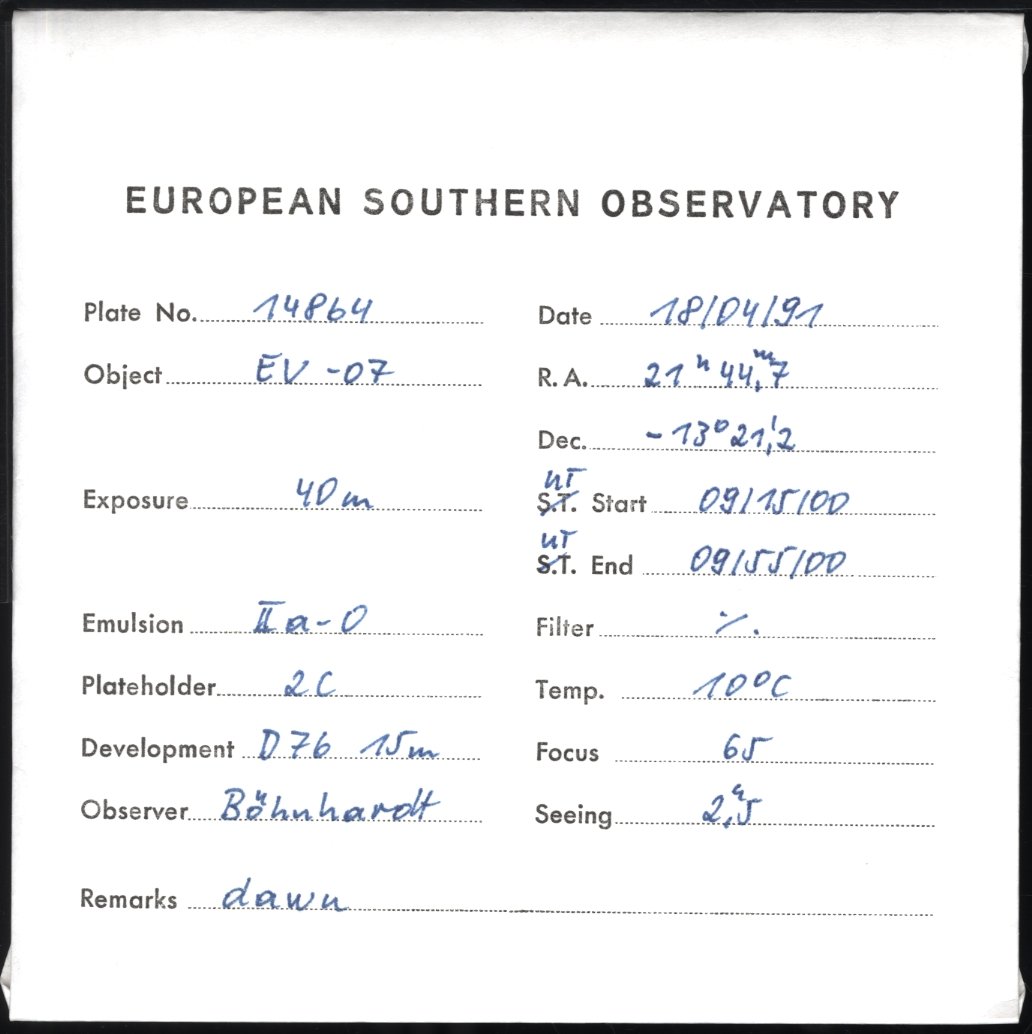 EUROPEAN SOUTHERN OBSERVATORY
Plate No. 14864
Date 18/04/91
Object EV-07
R. A. 21ʰ 44,ᵐ7
Dec. -13°21,'2
Exposure 40m
UT
S.T. Start 09/15/00
UT
S.T. End 09/55/00
Emulsion IIa-O
Filter ./.
Plateholder 2C
Temp. 10°C
Development D76 15m
Focus 65
Observer Böhnhardt
Seeing 2,"5
Remarks dawn